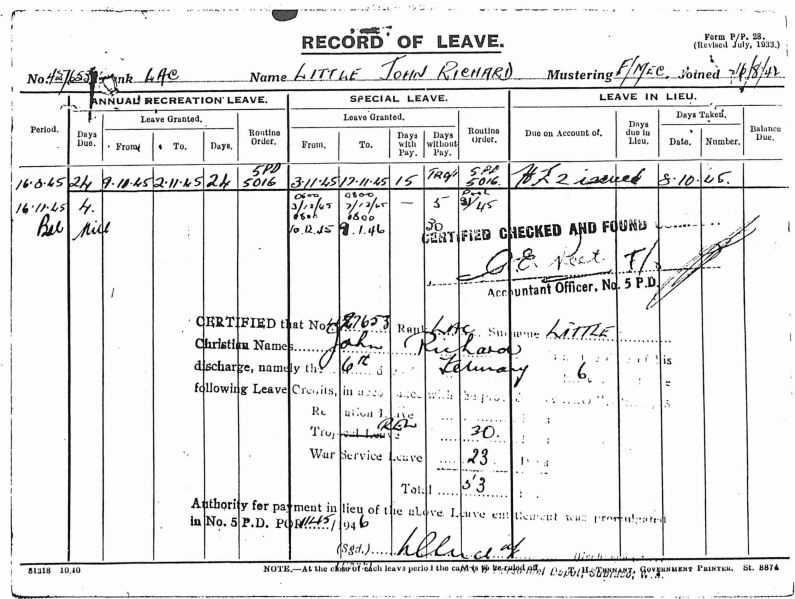 Form P/P. 28.
(Revised July, 1933.)
RECORD OF LEAVE.
No. 427653 Rank LAC Name LITTLE JOHN RICHARD Mustering F/MEC. Joined 16/8/42
ANNUAL RECREATION LEAVE. SPECIAL LEAVE. LEAVE IN LIEU.
Period. Days Due. Leave Granted. Routine Order. Leave Granted. Days with Pay. Days without Pay. Routine Order. Due on Account of. Days due in Lieu. Days Taken. Balance Due.
From. To. Days. From. To. Date. Number.
5PD
16-8-45 24 9-10-45 2-11-45 24 5016 3-11-45 17-11-45 15 5PD 5016. issued 8-10-45.
0800 0800
16-11-45 4. 3/12/45 7/12/45 — 5 /45
0800 0800 30
Bal Nill 10.12.45 9.1.46
CERTIFIED CHECKED AND FOUND
Accountant Officer, No. 5 P.D.
CERTIFIED that No. 427653 Rank LAC. Surname LITTLE
Christian Names John Richard
discharge, namely the 6th February 6.
following Leave Credits, in
Leave
Tropical Leave REL 30.
War Service Leave 23
Total 53
Authority for payment in lieu of the above Leave entitlement was promulgated
in No. 5 P.D. POR 1145/1946
(Sgd.)
51318 10,40 NOTE.—At the close of each leave period the card is to be ruled off. T. H. TENNANT, GOVERNMENT PRINTER. St. 8874
Depot, Subiaco, W.A.